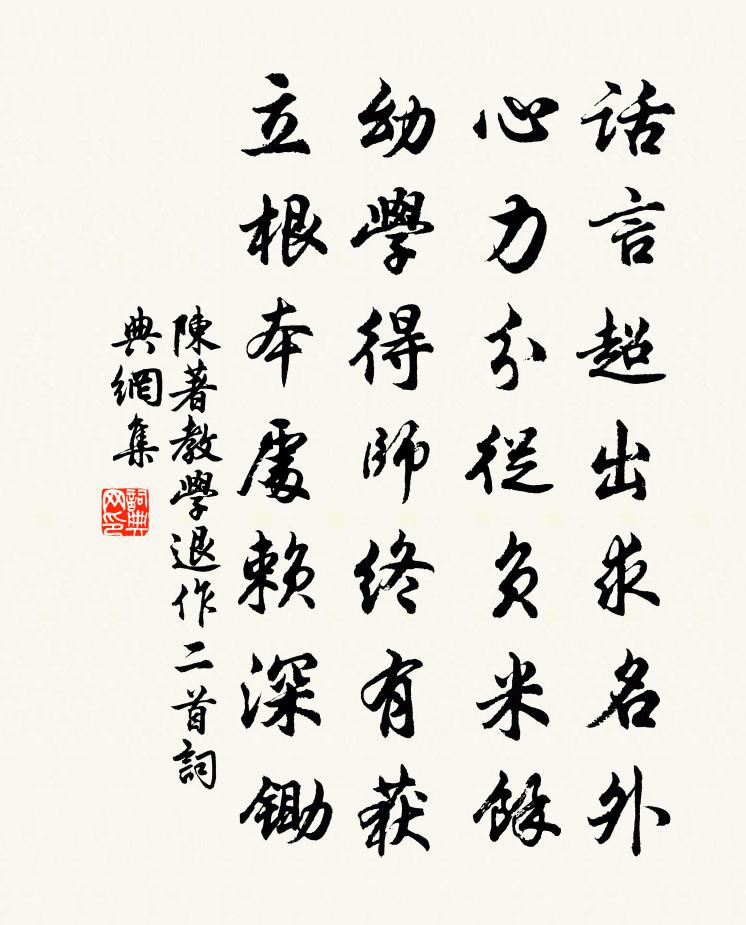 話言超出求名外
心力分從負米餘
幼學得師終有获
立根本處賴深鋤
陳著教學退作二首詞
典網集
詞典网印